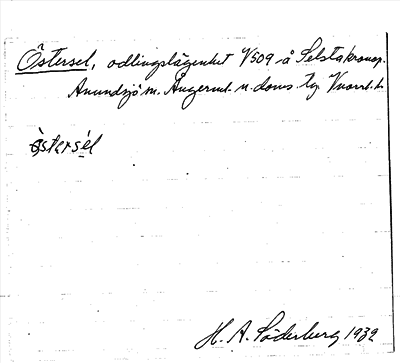 Östersel, odlingslägenhet V509 å Selsta kronop.
Anundsjö sn. Ångerml. n. doms. tg. Vnorrl. l.
òstersél
H. A. Söderberg 1932